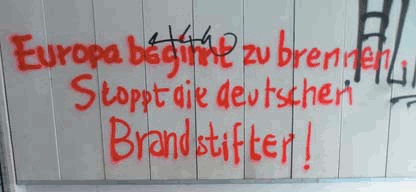 Europa beginnt zu brennen.
Stoppt die deutschen
Brandstifter!